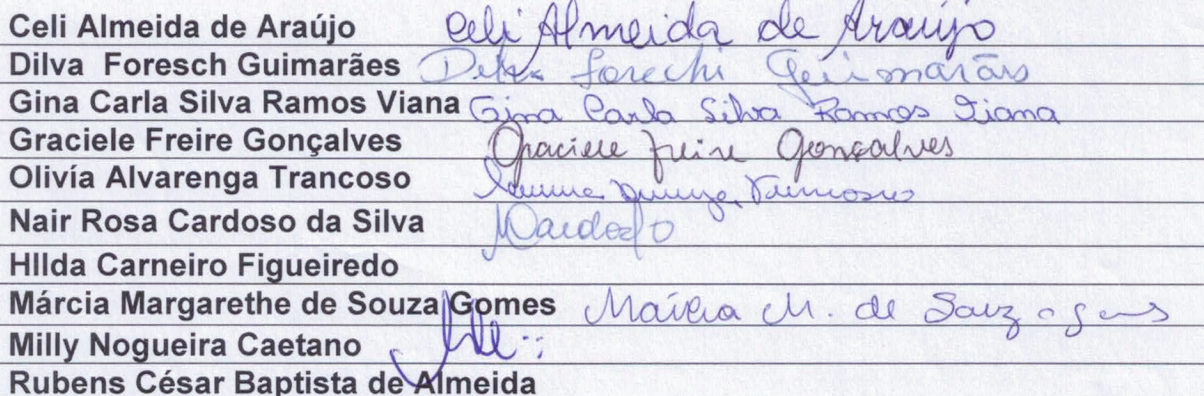 Celi Almeida de Araújo Celi Almeida de Araújo
Dilva Foresch Guimarães Dilva Forechi Guimarães
Gina Carla Silva Ramos Viana Gina Carla Silva Ramos Viana
Graciele Freire Gonçalves Graciele Freire Gonçalves
Olivía Alvarenga Trancoso
Nair Rosa Cardoso da Silva
HIlda Carneiro Figueiredo
Márcia Margarethe de Souza Gomes Márcia M. de Souza
Milly Nogueira Caetano
Rubens César Baptista de Almeida